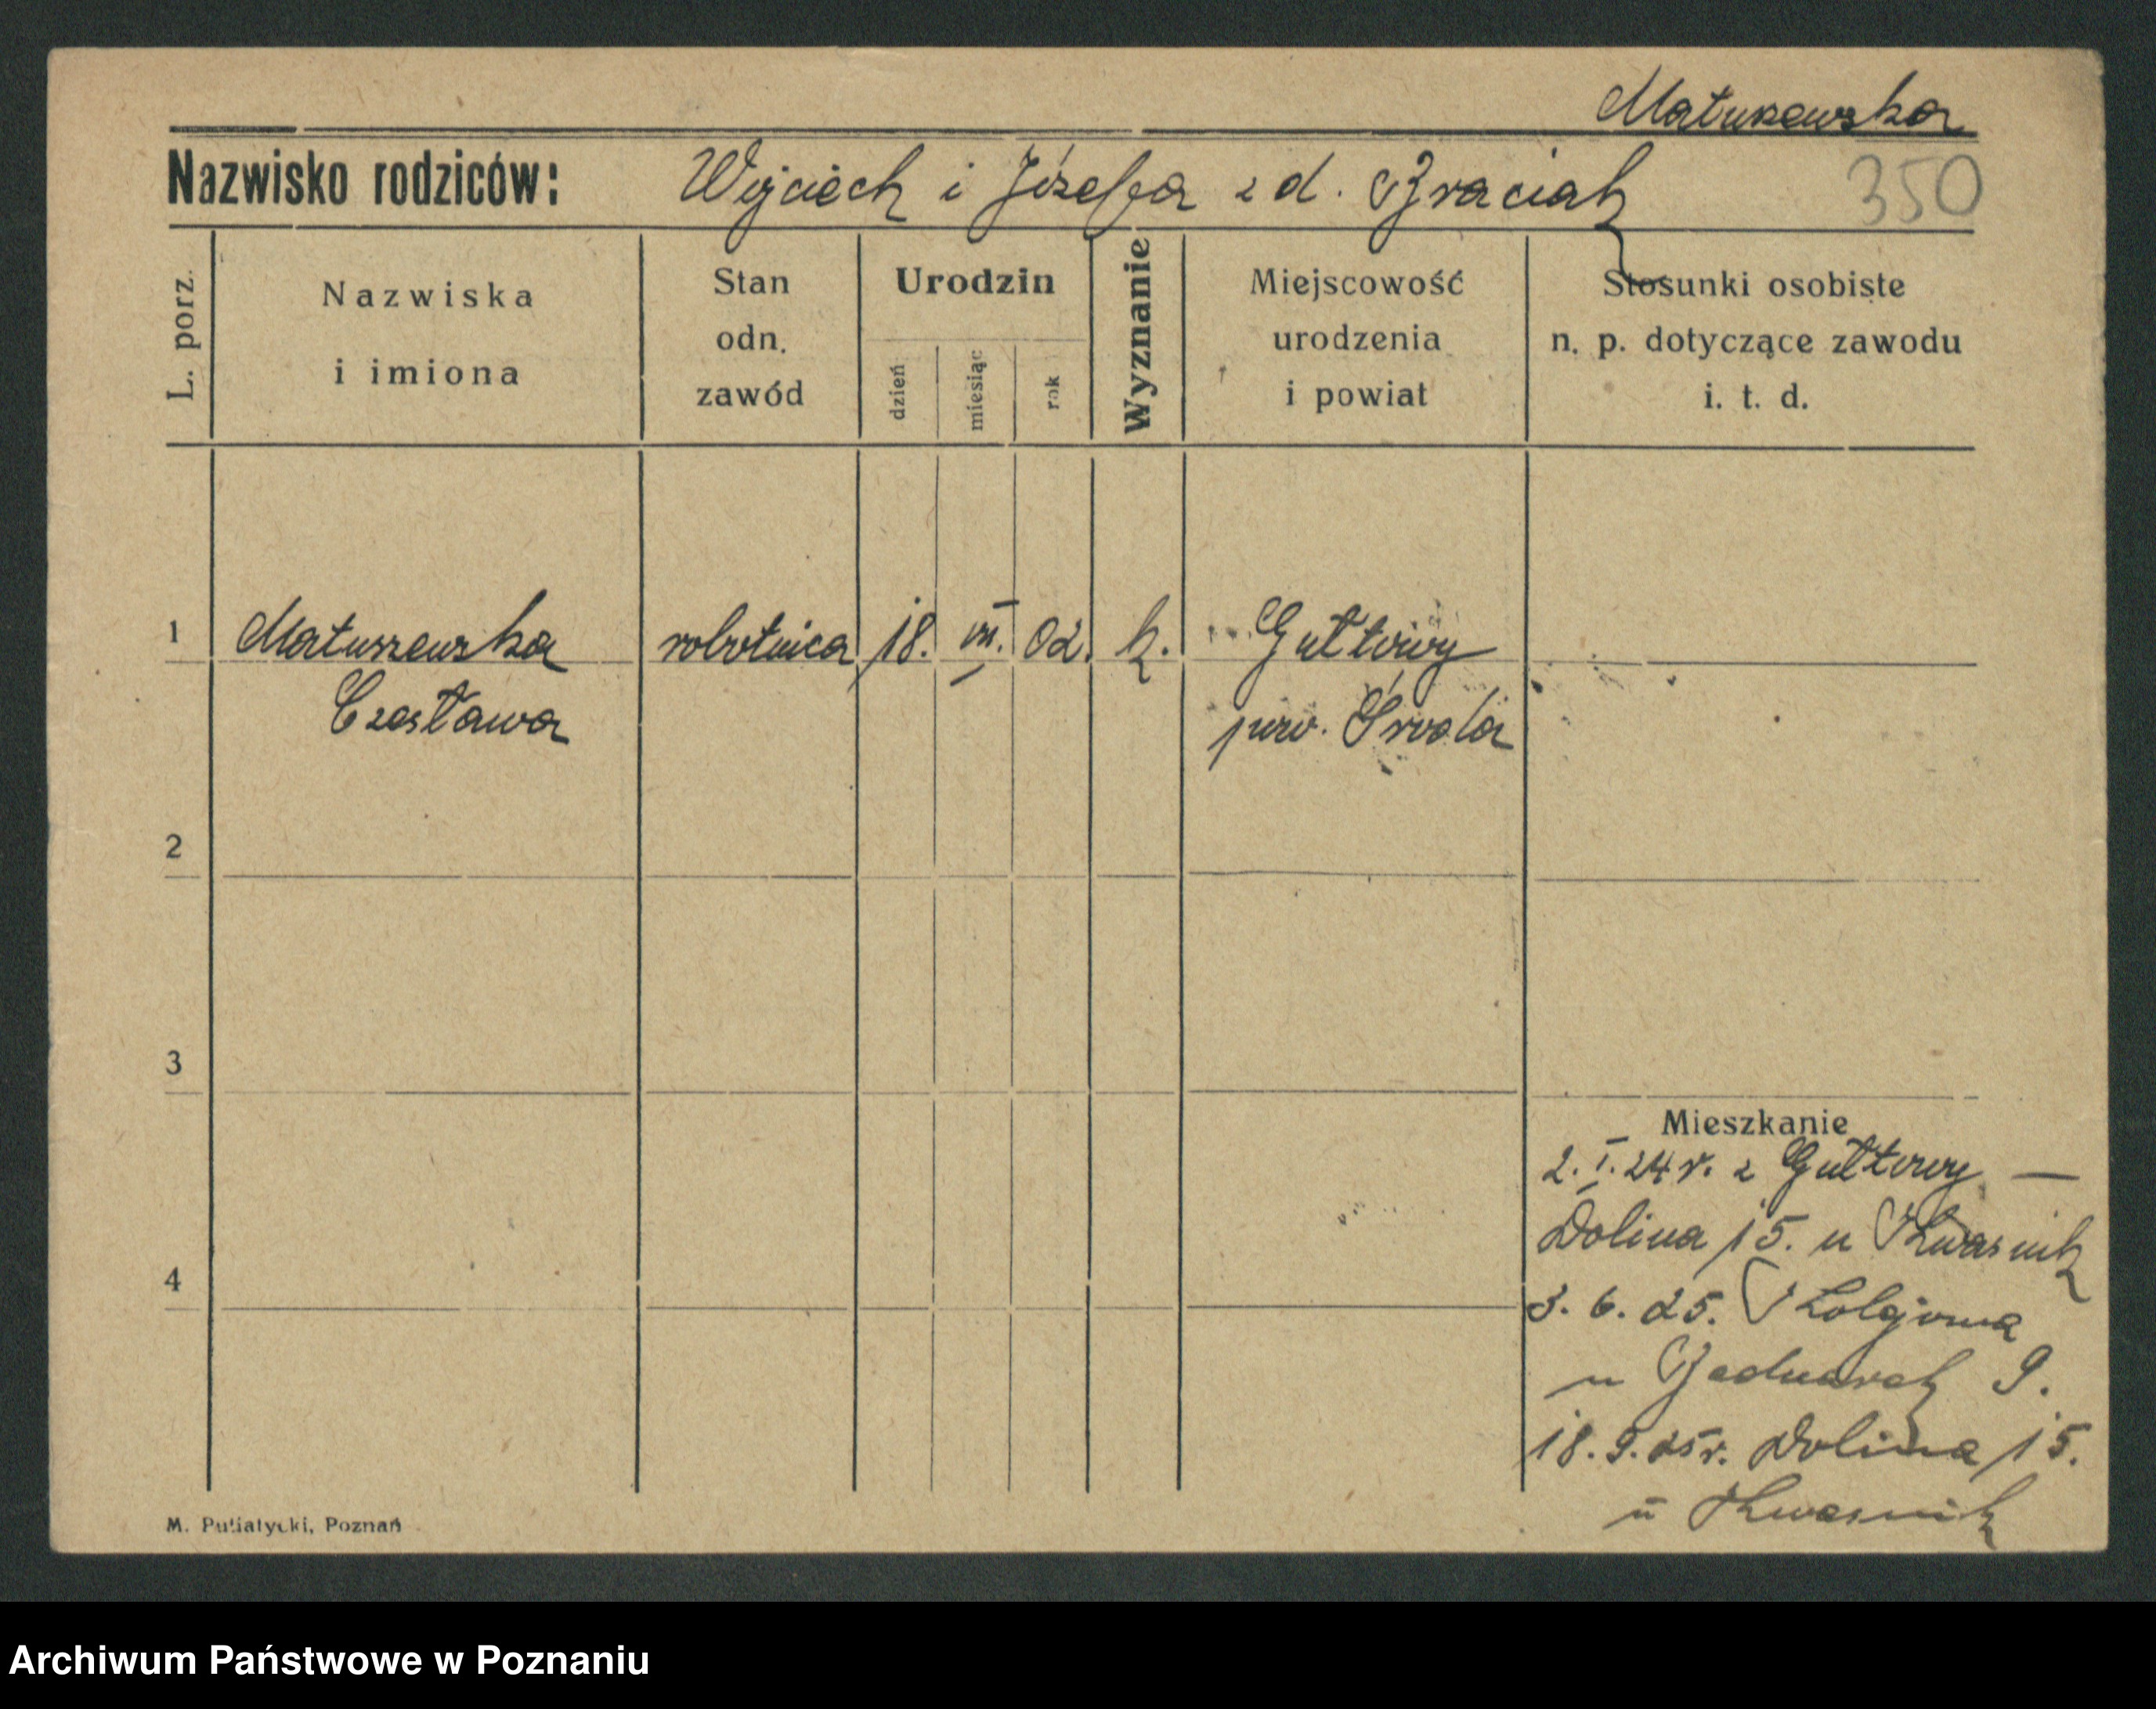 Matuszewska
Nazwisko rodziców: Wojciech i Józefa z d. Braciak
350
L. porz.
Nazwiska
i imiona
Stan
odn.
zawód
Urodzin
dzień
miesiąc
rok
Wyznanie
Miejscowość
urodzenia
i powiat
Stosunki osobiste
n. p. dotyczące zawodu
i. t. d.
1 Matuszewska robotnica 18. 02. k. Gułtowy
Czesława pow. Środa
2
3
Mieszkanie
2. I. 24 r. z Gułtowy —
Dolina 15. u Kwasnik
4
3. 6. 25. Kolejowa
u Bednarek 9.
18. 9. 25 r. Dolina 15.
u Kwasnik
M. Putiatycki, Poznań
Archiwum Państwowe w Poznaniu